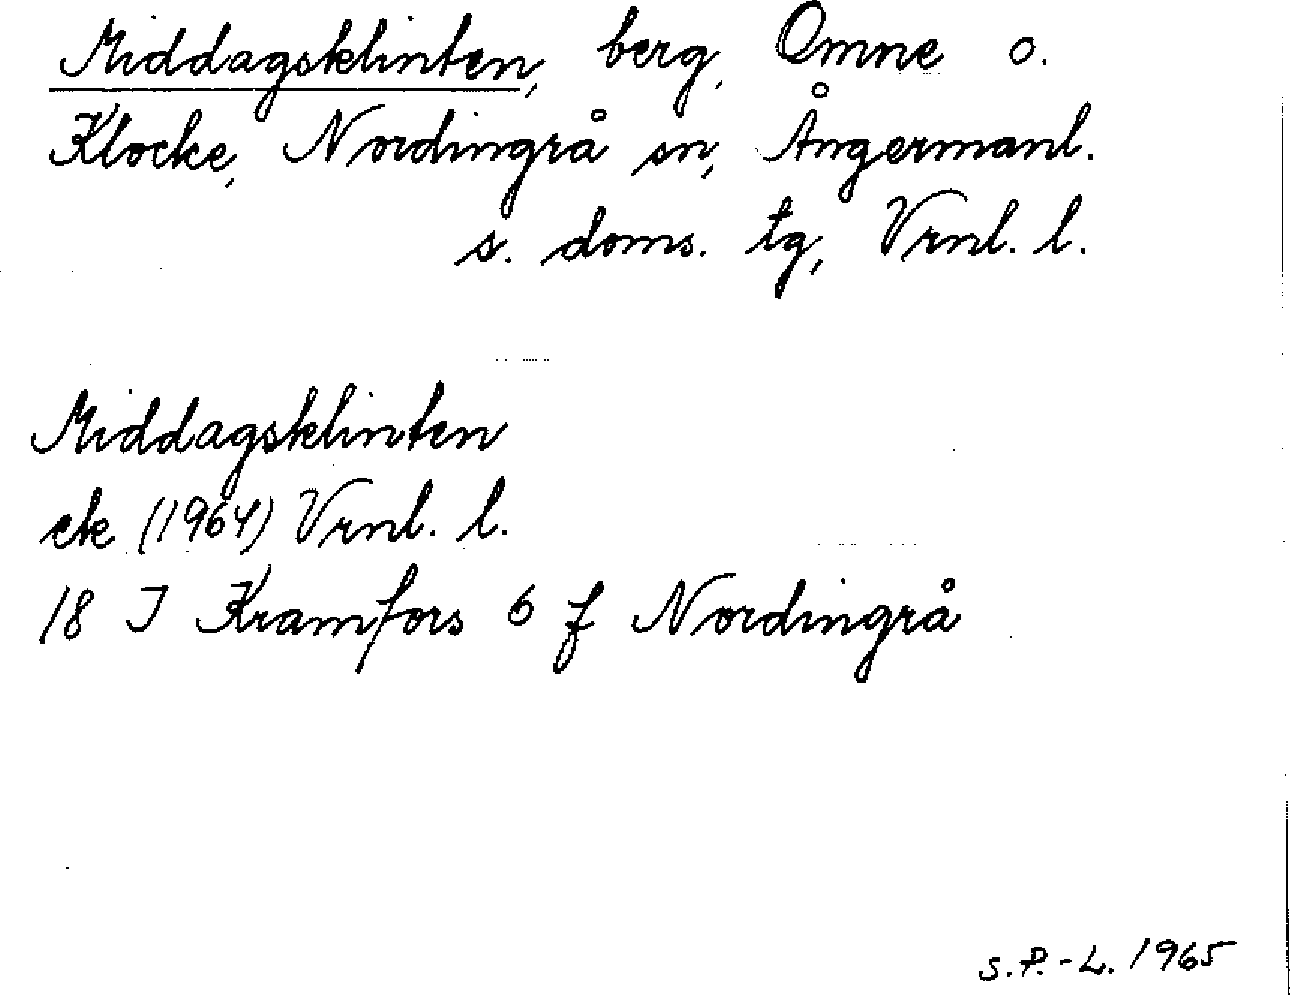 Middagsklinten, berg, Omne o.
Klocke, Nordingrå sn, Ångermanl.
s. doms. tg, Vrnl. l.
Middagsklinten
ek (1964) Vrnl. l.
18 I Kramfors 6 f Nordingrå
S.P.-L. 1965